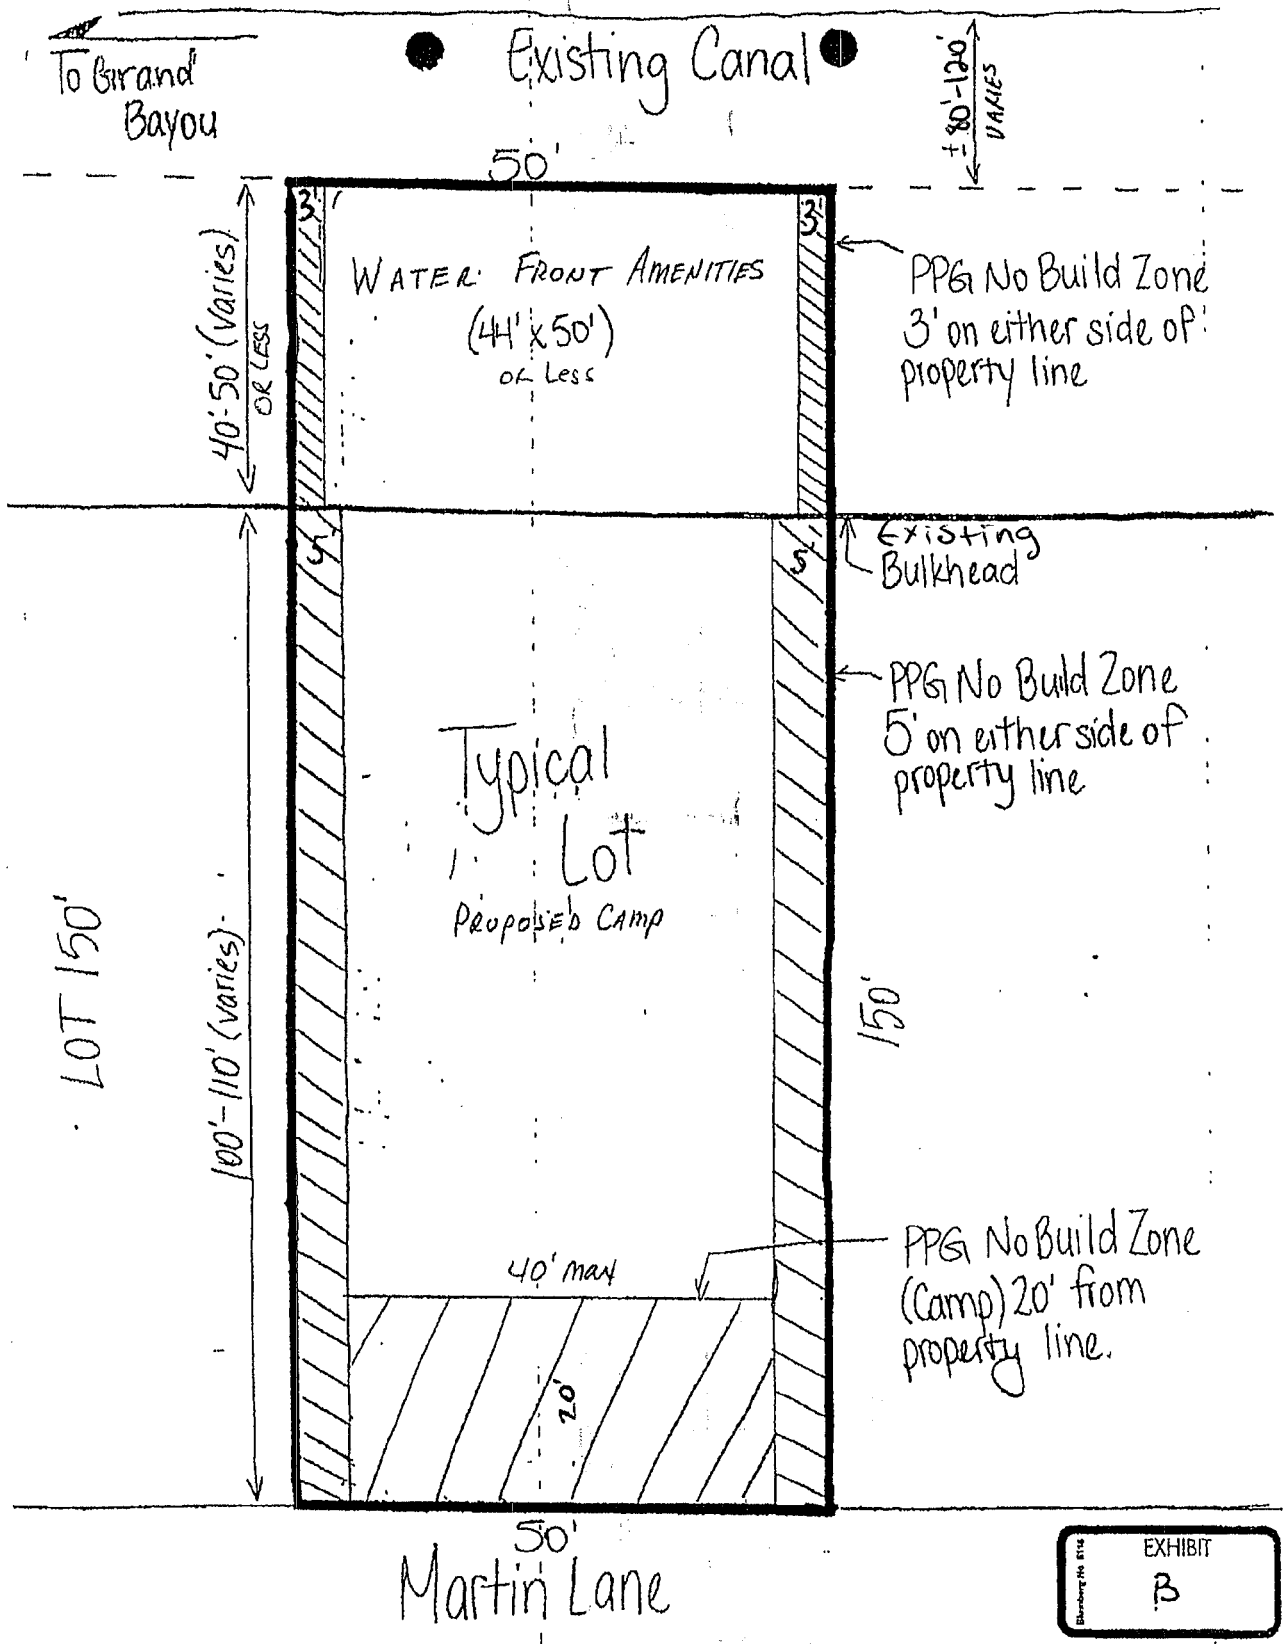 To Grand
Bayou
Existing Canal
±80'-120'
VARIES
50'
3'
3'
40'-50' (varies)
OR LESS
WATER FRONT AMENITIES
(44' x 50')
or Less
PPG No Build Zone
3' on either side of
property line
5'
5'
Existing
Bulkhead
PPG No Build Zone
5' on either side of
property line
Typical
Lot
PROPOSED CAMP
LOT 150'
100'-110' (varies)
150'
40' max
PPG No Build Zone
(Camp) 20' from
property line.
20'
50'
Martin Lane
EXHIBIT
B
Blumberg No. 5116